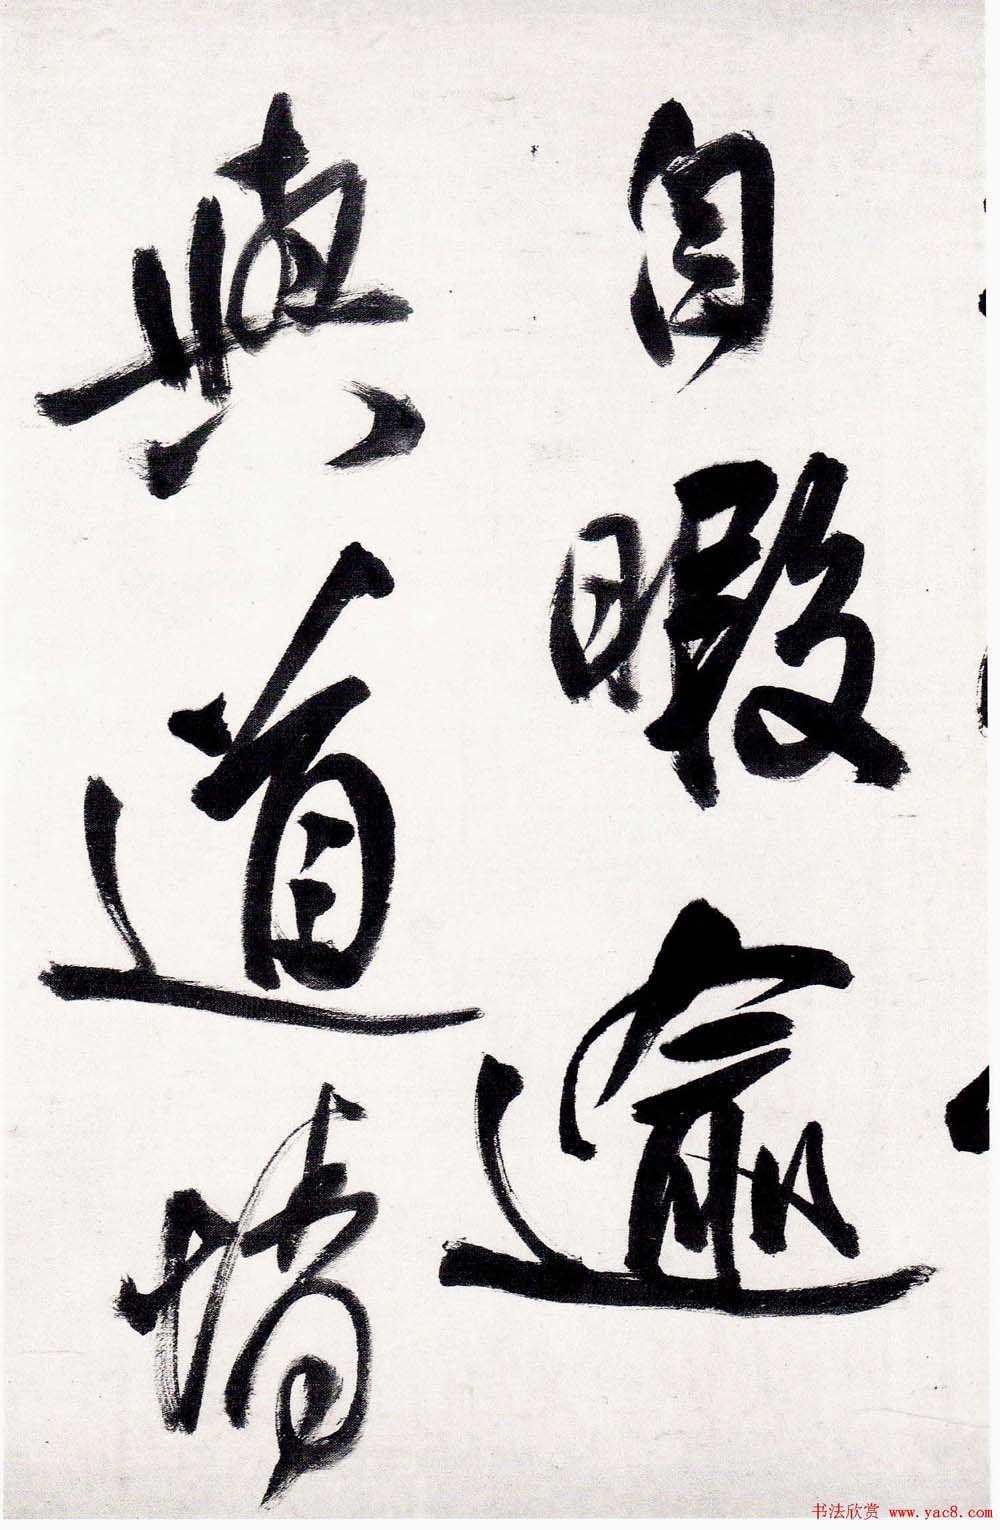 自暇邇
與道情
书法欣赏 www.yac8.com